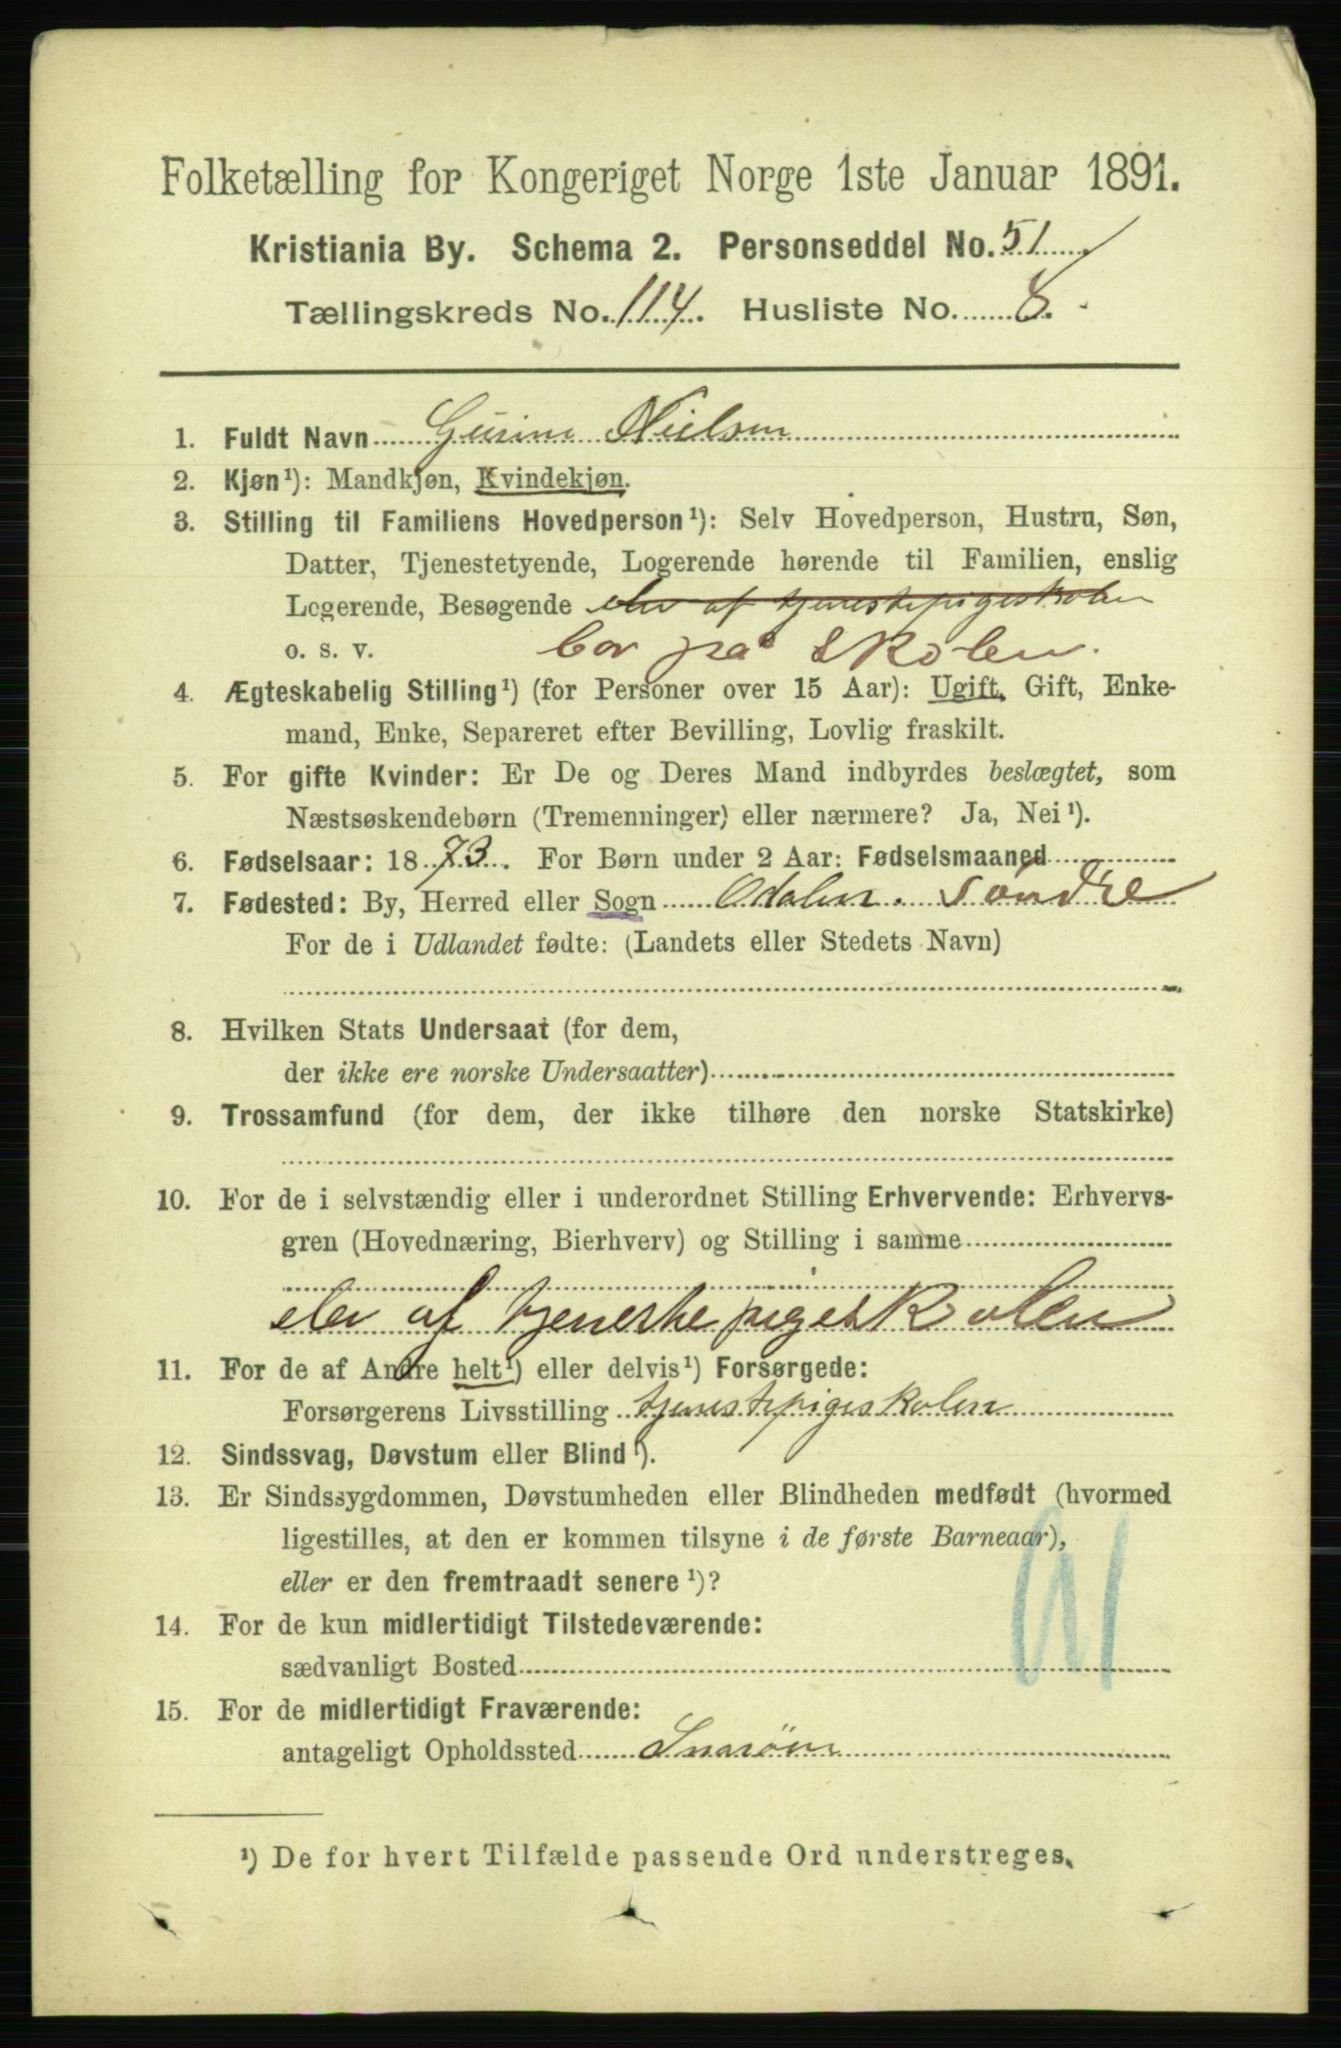 Folketælling for Kongeriget Norge 1ste Januar 1891.
Kristiania By. Schema 2. Personseddel No. 51
Tællingskreds No. 114. Husliste No. 8.
1. Fuldt Navn Gurine Nielsen
2. Kjøn¹): Mandkjøn, Kvindekjøn.
3. Stilling til Familiens Hovedperson¹): Selv Hovedperson, Hustru, Søn,
Datter, Tjenestetyende, Logerende hørende til Familien, enslig
Logerende, Besøgende elev af tjenestepigeskolen
o. s. v. bor på skolen.
4. Ægteskabelig Stilling¹) (for Personer over 15 Aar): Ugift, Gift, Enke-
mand, Enke, Separeret efter Bevilling, Lovlig fraskilt.
5. For gifte Kvinder: Er De og Deres Mand indbyrdes beslægtet, som
Næstsøskendebørn (Tremenninger) eller nærmere? Ja, Nei¹).
6. Fødselsaar: 1873. For Børn under 2 Aar: Fødselsmaaned
7. Fødested: By, Herred eller Sogn Odalen. söndre
For de i Udlandet fødte: (Landets eller Stedets Navn)
8. Hvilken Stats Undersaat (for dem,
der ikke ere norske Undersaatter)
9. Trossamfund (for dem, der ikke tilhøre den norske Statskirke)
10. For de i selvstændig eller i underordnet Stilling Erhvervende: Erhvervs-
gren (Hovednæring, Bierhverv) og Stilling i samme
elev af tjenestepigeskolen
11. For de af Andre helt¹) eller delvis¹) Forsørgede:
Forsørgerens Livsstilling tjenestepigeskolen
12. Sindssvag, Døvstum eller Blind¹).
13. Er Sindssygdommen, Døvstumheden eller Blindheden medfødt (hvormed
ligestilles, at den er kommen tilsyne i de første Barneaar),
eller er den fremtraadt senere¹)?
14. For de kun midlertidigt Tilstedeværende:
sædvanligt Bosted
15. For de midlertidigt Fraværende:
antageligt Opholdssted Snarøen
¹) De for hvert Tilfælde passende Ord understreges.